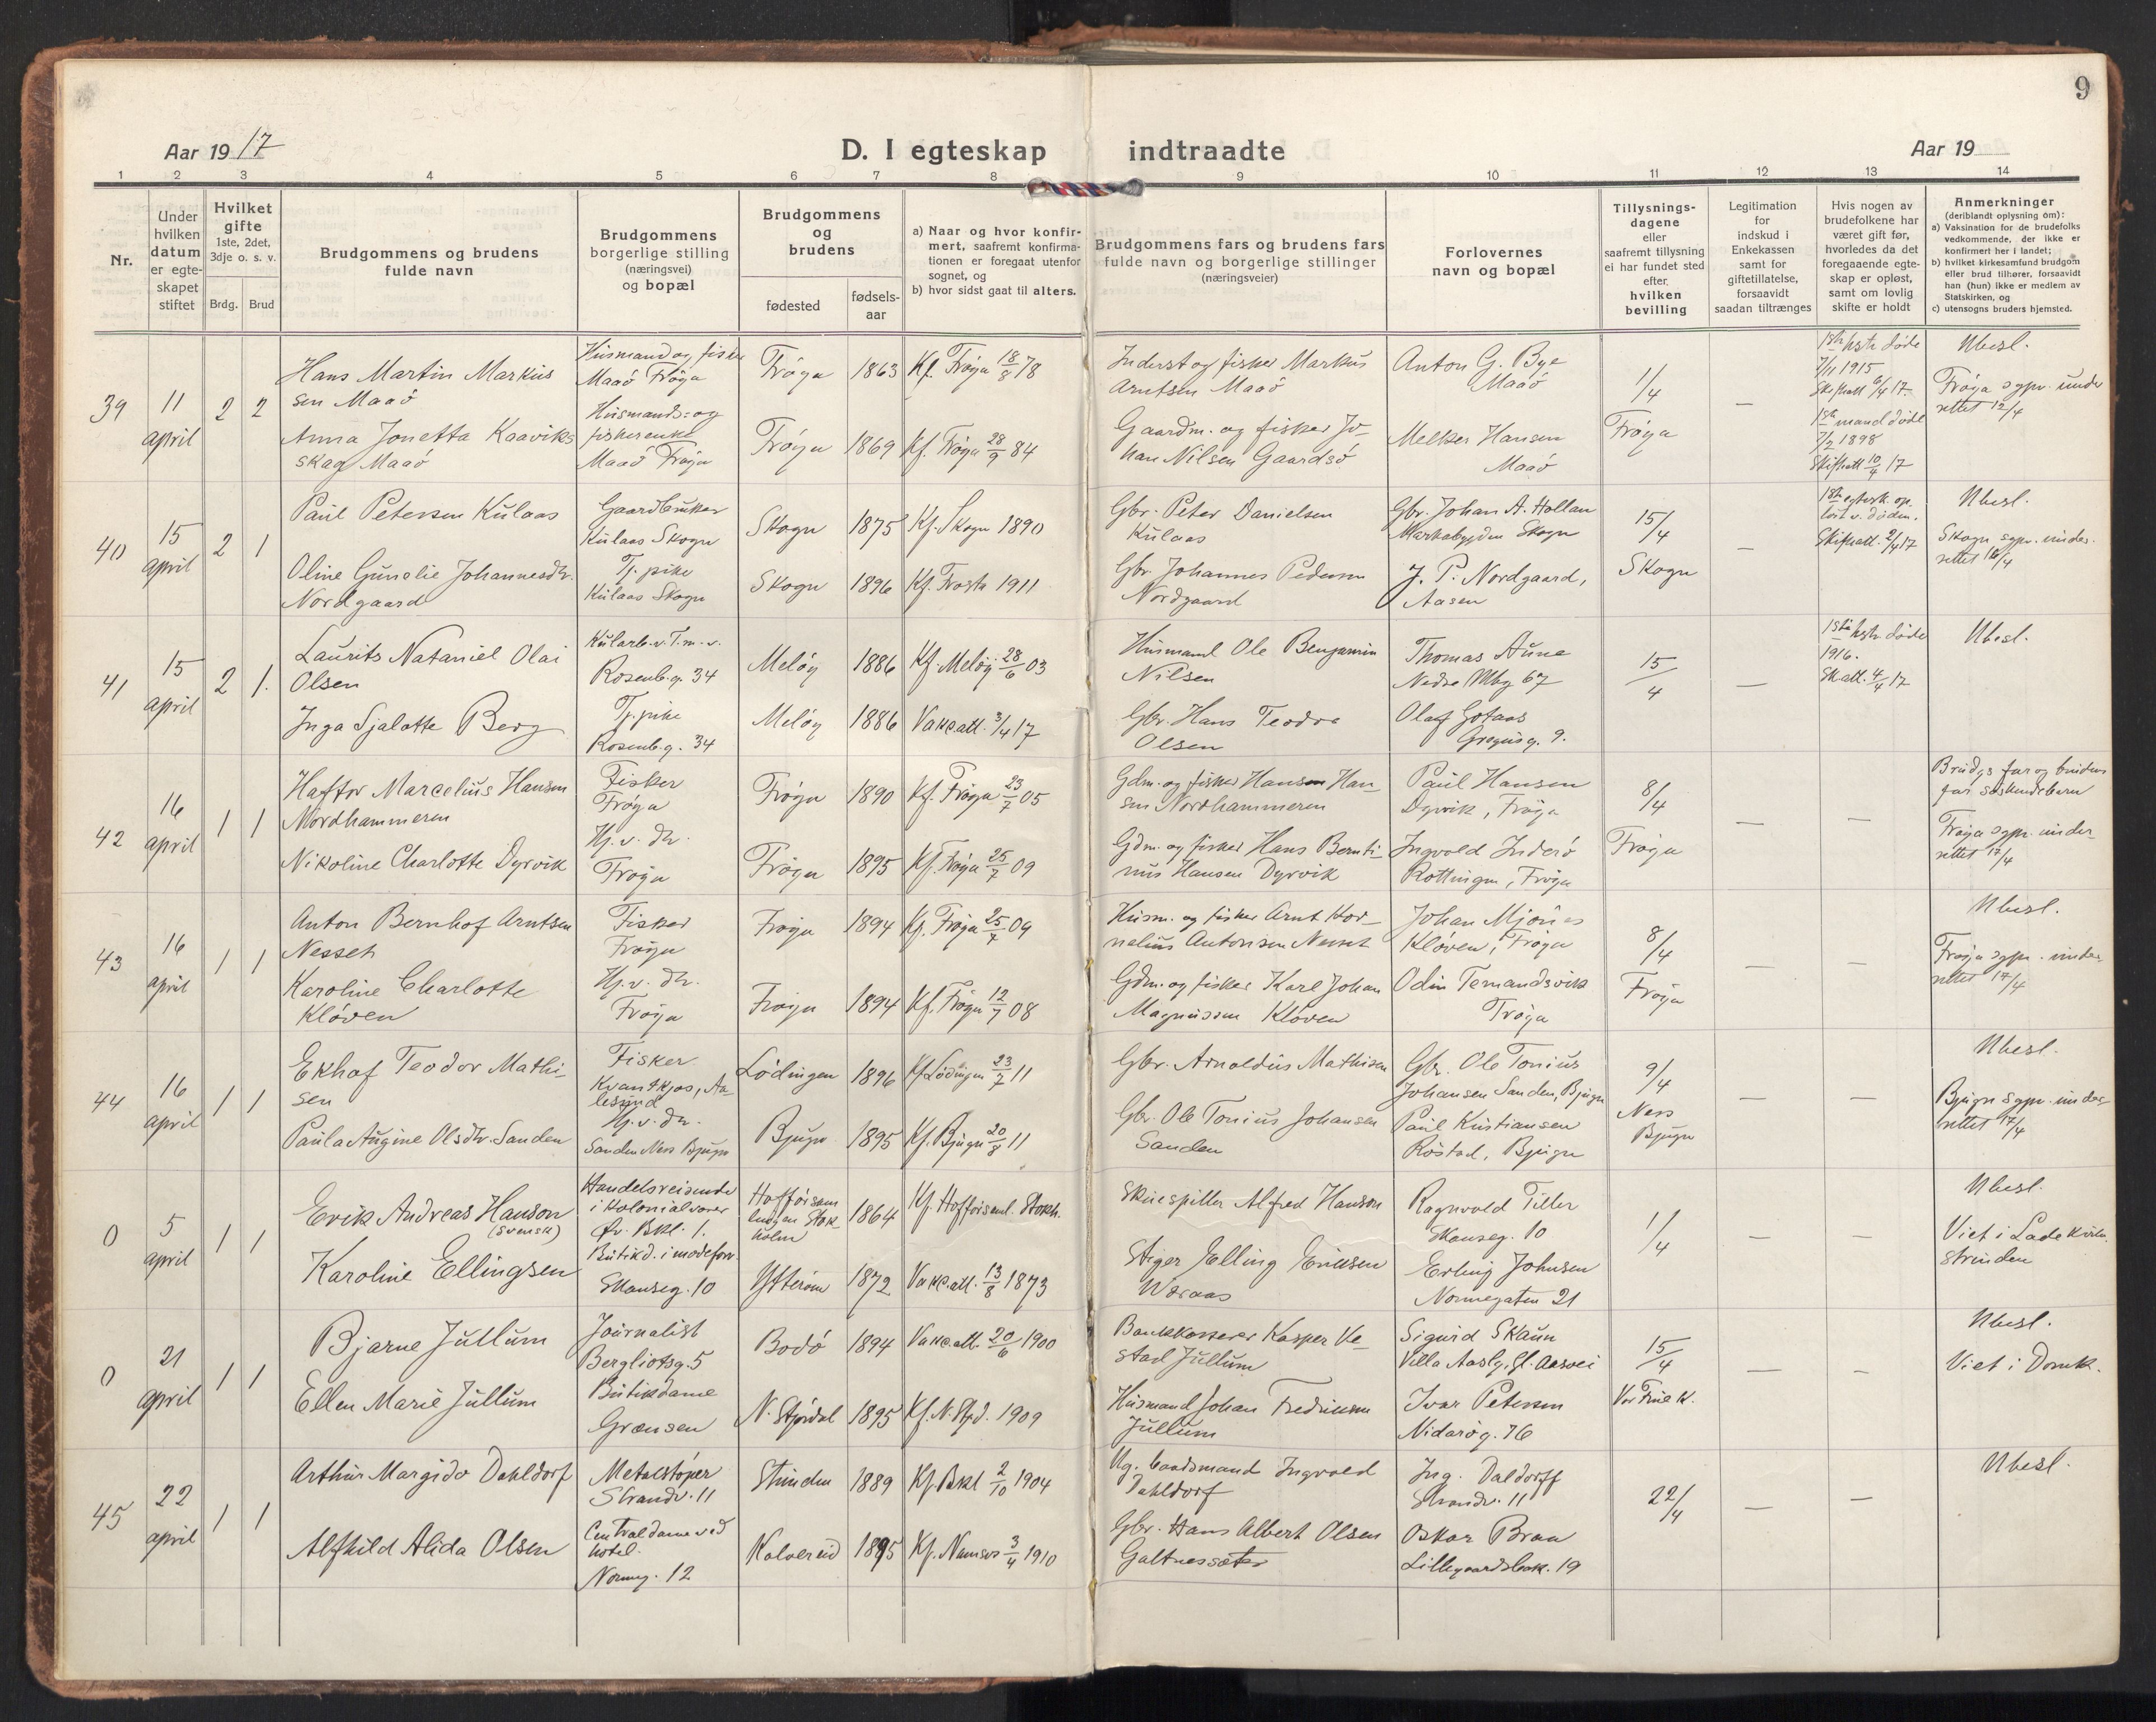 9
Aar 1917
D. I egteskap indtraadte
Aar 19
1 2 3 4 5 6 7 8 9 10 11 12 13 14
Nr.
Under hvilken datum er egteskapet stiftet
Hvilket gifte
1ste, 2det, 3dje o. s. v.
Brdg. Brud
Brudgommens og brudens fulde navn
Brudgommens borgerlige stilling (næringsvei) og bopæl
Brudgommens og brudens
fødested
fødsels-aar
a) Naar og hvor konfirmert, saafremt konfirmationen er foregaat utenfor sognet, og
b) hvor sidst gaat til alters.
Brudgommens fars og brudens fars fulde navn og borgerlige stillinger (næringsveier)
Forlovernes navn og bopæl
Tillysningsdagene eller saafremt tillysning ei har fundet sted efter hvilken bevilling
Legitimation for indskud i Enkekassen samt for giftetillatelse, forsaavidt saadan tiltrænges
Hvis nogen av brudefolkene har været gift før, hvorledes da det foregaaende egteskap er opløst, samt om lovlig skifte er holdt
Anmerkninger
(deriblandt oplysning om):
a) Vaksination for de brudefolks vedkommende, der ikke er konfirmert her i landet;
b) hvilket kirkesamfund brudgom eller brud tilhører, forsaavidt han (hun) ikke er medlem av Statskirken, og
c) utensogns bruders hjemsted.
39
11 april
2 2
Hans Martin Markussen Maaö
Husmand og fisker Maaö Fröya
Fröya 1863 Kf. Fröya 18/8 78
Inderst og fisker Markus Arntsen Maaö
Anton G. Bye Maaö
1/4 Fröya
—
1ste hstr døde 7/11 1915 Skifteatt 6/4 17.
Ubesl.
Fröya sgpr. underrettet 12/4
Anna Jonetta Kaavikskag Maaö
Husmands- og fiskerenke Maaö Fröya
Fröya 1869 Kf. Fröya 28/9 84
Gaardm. og fisker Johan Nilsen Gaardsö
Melker Hansen Maaö
1ste mand døde 7/2 1898 Skifteatt 10/4 17
40
15 april
2 1
Paul Petersen Kulaas
Gaardbruker Kulaas Skogn
Skogn 1875 Kf. Skogn 1890
Gbr. Peter Danielsen Kulaas
Gbr. Johan A. Hollan Markabygden Skogn
15/4 Skogn
—
1ste egtesk. opløst v. døden. Skifteatt. 2/4 17
Ubesl.
Skogn sgpr. underrettet 16/4
Oline Gunelie Johannesdtr. Nordgaard
Tj. pike Kulaas Skogn
Skogn 1896 Kf. Frosta 1911
Gbr. Johannes Pedersen Nordgaard
J. P. Nordgaard, Aasen
41
15 april
2 1.
Laurits Nataniel Olai Olsen
Kularb. v. T. m. v. Rosenb.g. 34
Melöy 1886 Kf. Melöy 28/6 03
Husmand Ole Benjamin Nilsen
Thomas Aune Nedre Mbg 67
15/4
—
1ste hstr døde 1916. Sk att. 4/4 17
Ubesl.
Inga Sjalotte Berg
Tj. pike Rosenb.g. 34
Melöy 1886 Vakc.att. 3/4 17
Gbr. Hans Teodor Olsen
Olaf Gotaas Gregusg. 9.
42
16 april
1 1
Haftor Marcelius Hansen Nordhammeren
Fisker Fröya
Fröya 1890 Kf. Fröya 23/7 05
Gdm. og fisker Hansen Hansen Nordhammeren
Paul Hansen Dyrvik, Fröya
8/4 Fröya
— —
Brudgs far og brudens far søskendebarn
Fröya sgpr. underrettet 17/4
Nikoline Charlotte Dyrvik
Hj. v. dtr. Fröya
Fröya 1895 Kf. Fröya 25/7 09
Gdm. og fisker Hans Berntinus Hansen Dyrvik
Ingvald Inderö Rottingen, Fröya
43
16 april
1 1
Anton Bernhof Arntsen Nesset
Fisker Fröya
Fröya 1894 Kf. Fröya 25/7 09
Husm. og fisker Arnt Kornelius Antonsen Nesset
Johan Mjönes Klöven, Fröya
8/4 Fröya
— —
Ubesl.
Fröya sgpr. underrettet 17/4
Karoline Charlotte Klöven
Hj. v. dtr. Fröya
Fröya 1894 Kf. Fröya 12/7 08
Gdm. og fisker Karl Johan Magnussen Klöven
Odin Ternandsvik Fröya
44
16 april
1 1
Ekhof Teodor Mathisen
Fisker Kvantkjos, Aalesund
Lödingen 1896 Kf Lödingen 23/7 11
Gbr. Arnoldus Mathisen
Gbr. Ole Tonius Johansen Sanden, Bjugn
9/4 Ness Bjugn
— —
Ubesl.
Bjugn sgpr. underrettet 17/4
Paula Augine Olsdtr. Sanden
Hj. v. dtr. Sanden Ness Bjugn
Bjugn 1895 Kf. Bjugn 20/8 11
Gbr. Ole Tonius Johansen Sanden
Paul Kristiansen Röstad, Bjugn
0
5 april
1 1
Erik Andreas Hanson (svensk)
Handelsreisende i kolonialvarer Øv. Bkl. 1.
Hofförsamlingen Stokholm 1864 Kf. Hofförsaml. Stokh.
Skuespiller Alfred Hanson
Ragnvald Tiller Skanseg. 10
1/4
— —
Ubesl.
Viet i Lade kirke. Strinden
Karoline Ellingsen
Butikd. i modeforr. Skanseg. 10
Ytterøen 1872 Vakc.att. 13/8 1873
Stiger Elling Eriksen Woraas
Erling Johnsen Nonnegaten 21
0
21 april
1 1
Bjarne Jullum
Journalist Bergliotsg. 5
Bodö 1894 Vakc.att. 20/6 1900
Bankkasserer Kasper Vestad Jullum
Sigurd Skaun Villa Aasly, Gl. Aasvei
15/4 Vor Frue K.
— —
Ubesl.
Viet i Domk.
Ellen Marie Jullum
Butikdame Grænsen
N. Stjördal 1895 Kf. N. Stjd. 1909
Husmand Johan Fredriksen Jullum
Ivar Petersen Nidarög. 16
45
22 april
1 1
Arthur Margido Dahldorf
Metalstöper Strandv. 11
Strinden 1889 Kf. Bakl 2/10 1904
Ug. baadsmand Ingvald Dahldorf
Ing. Daldorff Strandv. 11
22/4
— —
Ubesl.
Alfhild Alida Olsen
Centraldame ved hotel. Nonneg. 12
Kolvereid 1895 Kf. Namsos 3/4 1910
Gbr. Hans Albert Olsen Galtnessæter
Oskar Braa Lillegaardsbak. 19